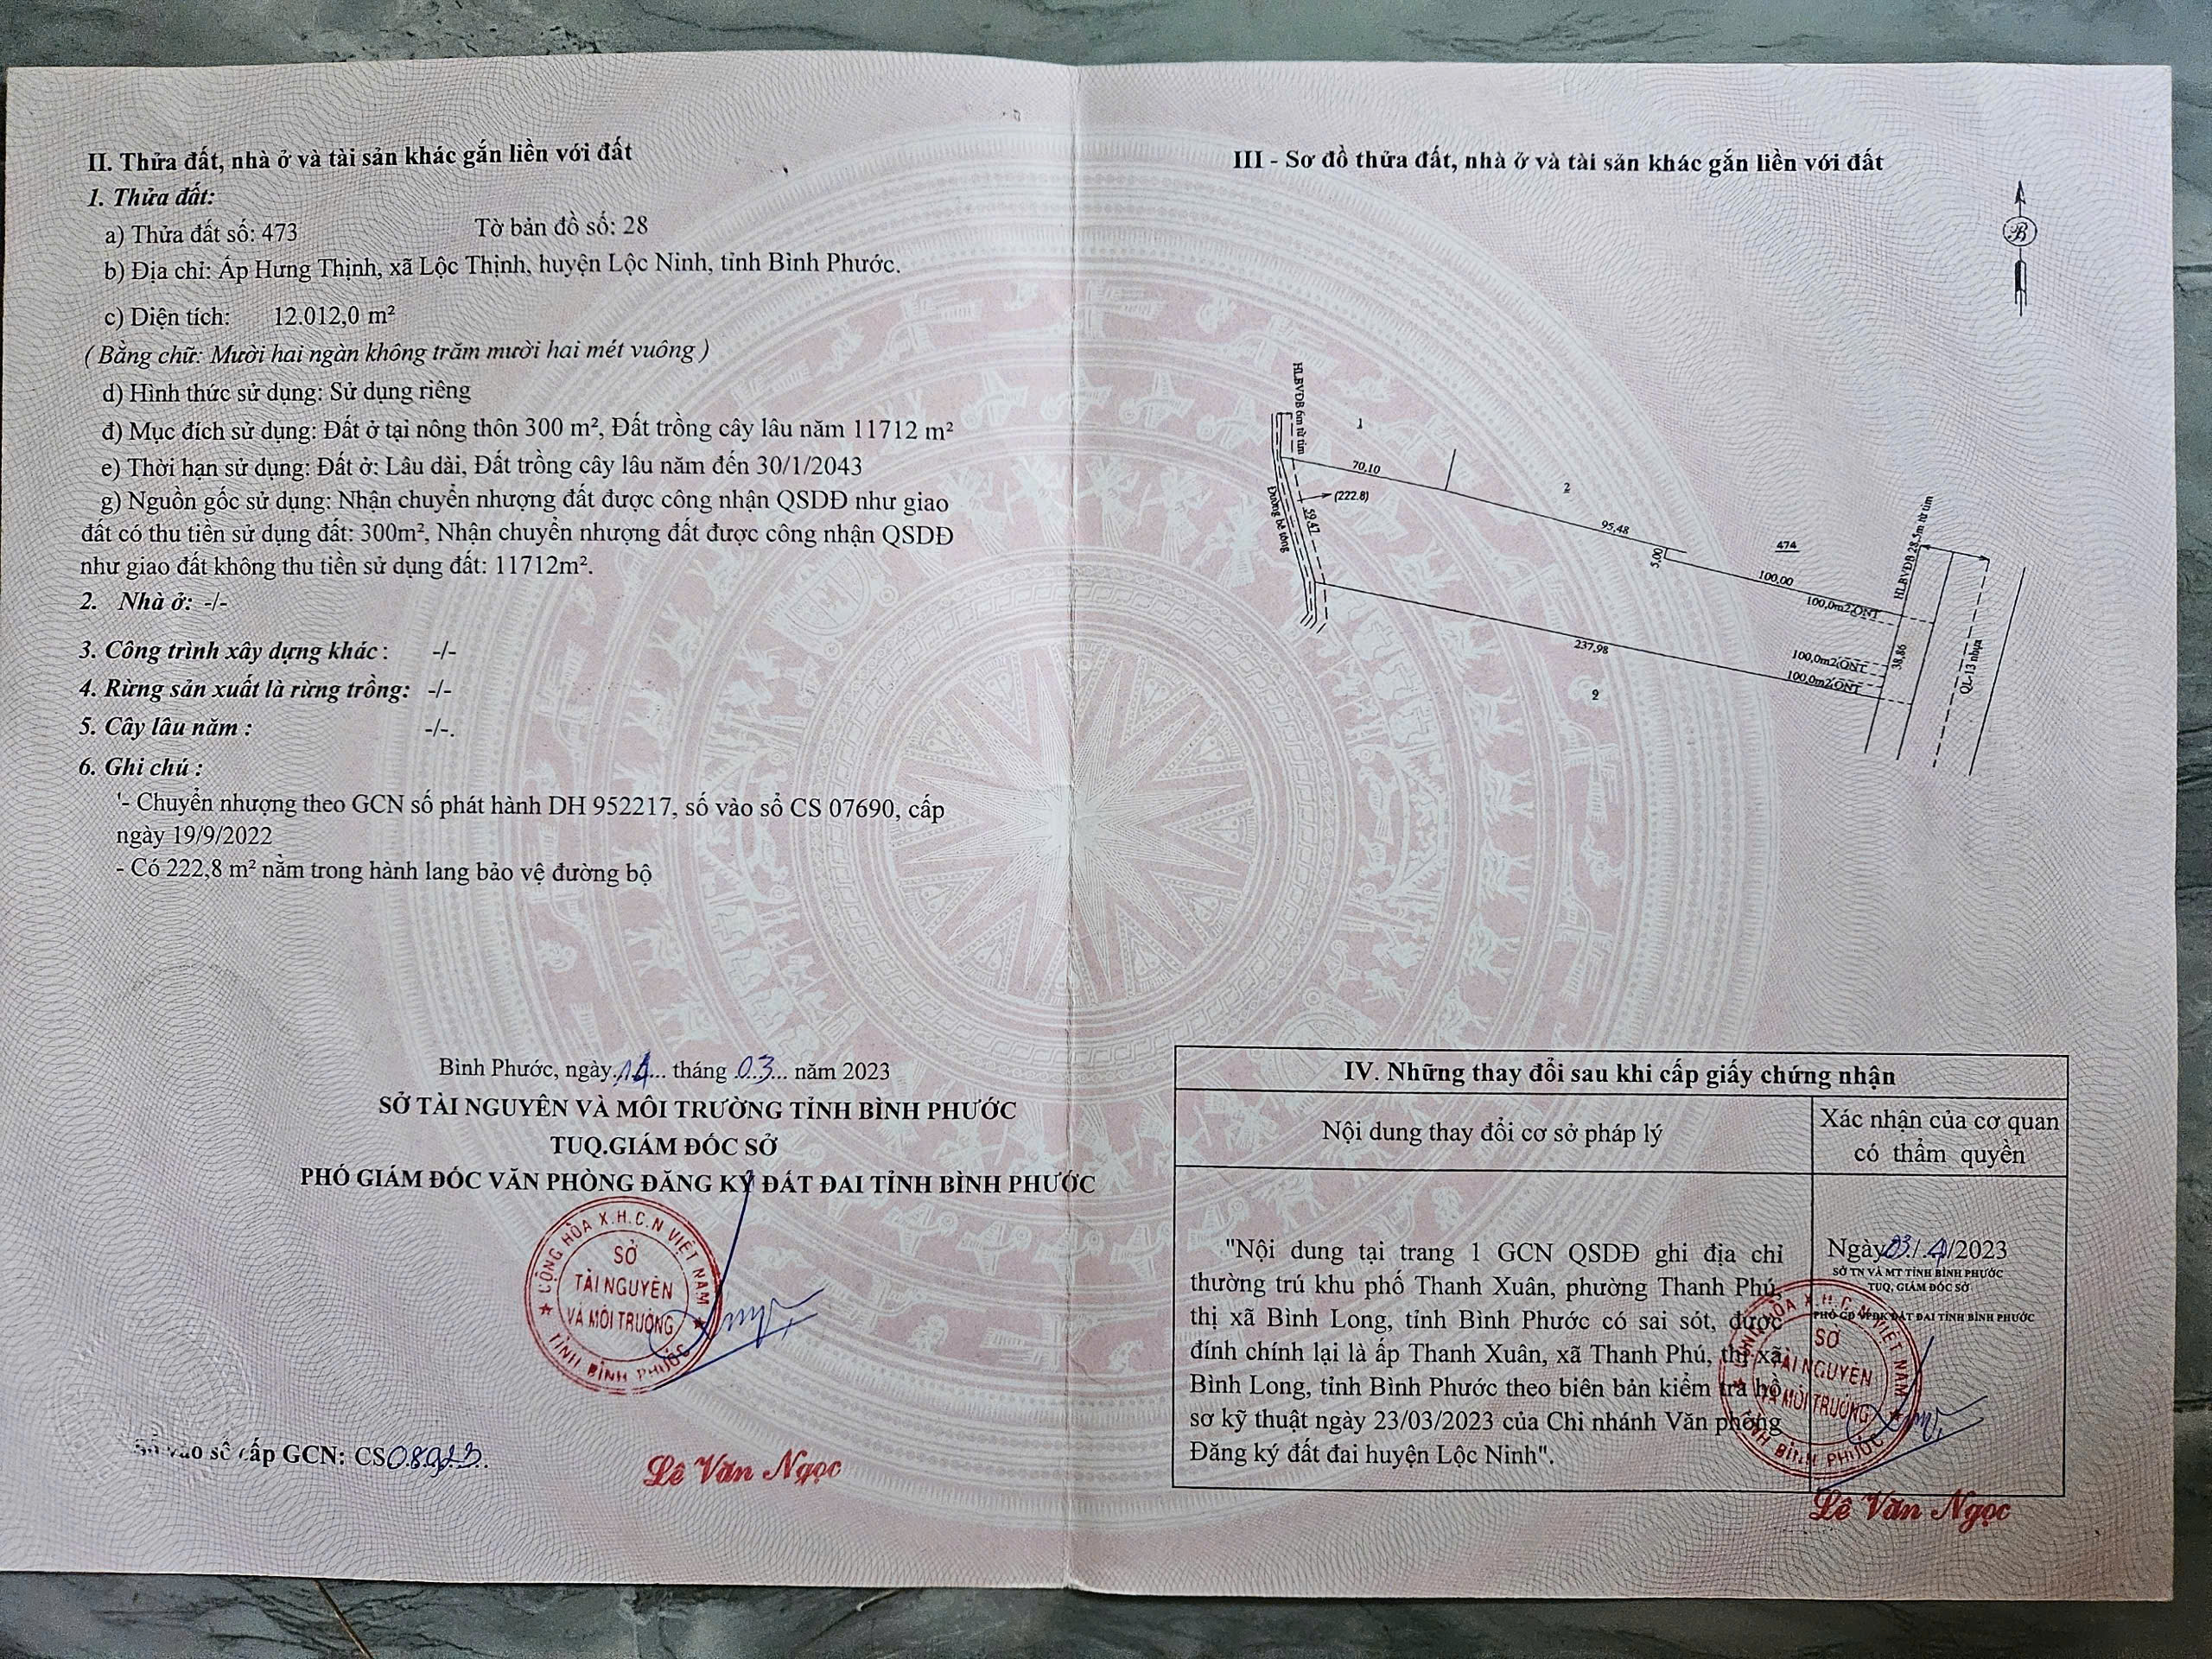 II. Thửa đất, nhà ở và tài sản khác gắn liền với đất
1. Thửa đất:
a) Thửa đất số: 473 Tờ bản đồ số: 28
b) Địa chỉ: Ấp Hưng Thịnh, xã Lộc Thịnh, huyện Lộc Ninh, tỉnh Bình Phước.
c) Diện tích: 12.012,0 m²
( Bằng chữ: Mười hai ngàn không trăm mười hai mét vuông )
d) Hình thức sử dụng: Sử dụng riêng
đ) Mục đích sử dụng: Đất ở tại nông thôn 300 m², Đất trồng cây lâu năm 11712 m²
e) Thời hạn sử dụng: Đất ở: Lâu dài, Đất trồng cây lâu năm đến 30/1/2043
g) Nguồn gốc sử dụng: Nhận chuyển nhượng đất được công nhận QSDĐ như giao
đất có thu tiền sử dụng đất: 300m², Nhận chuyển nhượng đất được công nhận QSDĐ
như giao đất không thu tiền sử dụng đất: 11712m².
2. Nhà ở: -/-
3. Công trình xây dựng khác : -/-
4. Rừng sản xuất là rừng trồng: -/-
5. Cây lâu năm : -/-.
6. Ghi chú :
'- Chuyển nhượng theo GCN số phát hành DH 952217, số vào sổ CS 07690, cấp
ngày 19/9/2022
- Có 222,8 m² nằm trong hành lang bảo vệ đường bộ
Bình Phước, ngày 14 tháng 03 năm 2023
SỞ TÀI NGUYÊN VÀ MÔI TRƯỜNG TỈNH BÌNH PHƯỚC
TUQ.GIÁM ĐỐC SỞ
PHÓ GIÁM ĐỐC VĂN PHÒNG ĐĂNG KÝ ĐẤT ĐAI TỈNH BÌNH PHƯỚC
CỘNG HÒA X.H.C.N VIỆT NAM
SỞ
TÀI NGUYÊN
VÀ MÔI TRƯỜNG
TỈNH BÌNH PHƯỚC
Số vào sổ cấp GCN: CS
Lê Văn Ngọc
III - Sơ đồ thửa đất, nhà ở và tài sản khác gắn liền với đất
B
HLBVĐB 6m từ tim
1
70,10
(222.8)
59,47
Đường bê tông
2
95,48
5,00
474
100,00
HLBVĐB 28.5m từ tim
100,0m2 ONT
100,0m2 ONT
100,0m2 ONT
38,86
QL-13 nhựa
237,98
2
IV. Những thay đổi sau khi cấp giấy chứng nhận
Nội dung thay đổi cơ sở pháp lý
Xác nhận của cơ quan
có thẩm quyền
"Nội dung tại trang 1 GCN QSDĐ ghi địa chỉ
thường trú khu phố Thanh Xuân, phường Thanh Phú,
thị xã Bình Long, tỉnh Bình Phước có sai sót, được
đính chính lại là ấp Thanh Xuân, xã Thanh Phú, thị xã
Bình Long, tỉnh Bình Phước theo biên bản kiểm tra hồ
sơ kỹ thuật ngày 23/03/2023 của Chi nhánh Văn phòng
Đăng ký đất đai huyện Lộc Ninh".
Ngày 03/ 4/2023
SỞ TN VÀ MT TỈNH BÌNH PHƯỚC
TUQ, GIÁM ĐỐC SỞ
PHÓ GĐ VPĐK ĐẤT ĐAI TỈNH BÌNH PHƯỚC
SỞ
TÀI NGUYÊN
VÀ MÔI TRƯỜNG
TỈNH BÌNH PHƯỚC
Lê Văn Ngọc